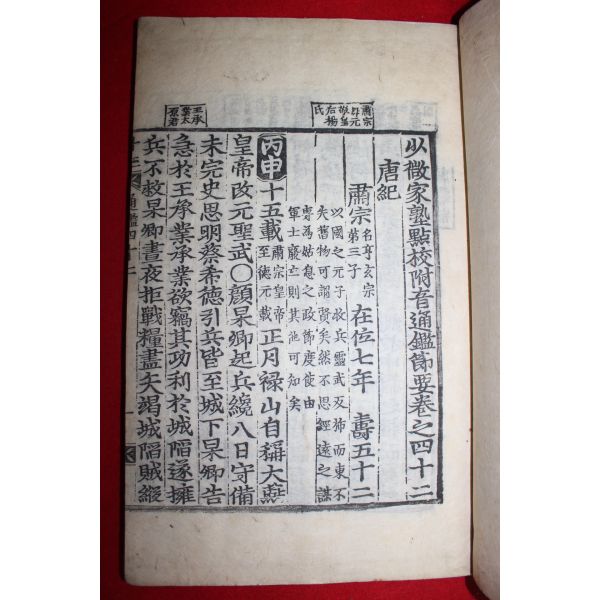 少微家塾點校附音通鑑節要卷之四十二
唐紀
肅宗 名亨玄宗第三子 在位七年 壽五十二
以國之元子收兵靈武反斾而東不
失舊物可謂賢矣然不思經遠之謀
專為姑息之政節度使由
軍士廢立則其他可知矣
丙申 十五載 肅宗皇帝至德元載 正月祿山自稱大燕
皇帝改元聖武○顏杲卿起兵纔八日守備
未完史思明蔡希德引兵皆至城下杲卿告
急於王承業承業欲竊其功利於城陷遂擁
兵不救杲卿晝夜拒戰糧盡矢竭城陷賊縱
通鑑四十二
一
王承業太原尹